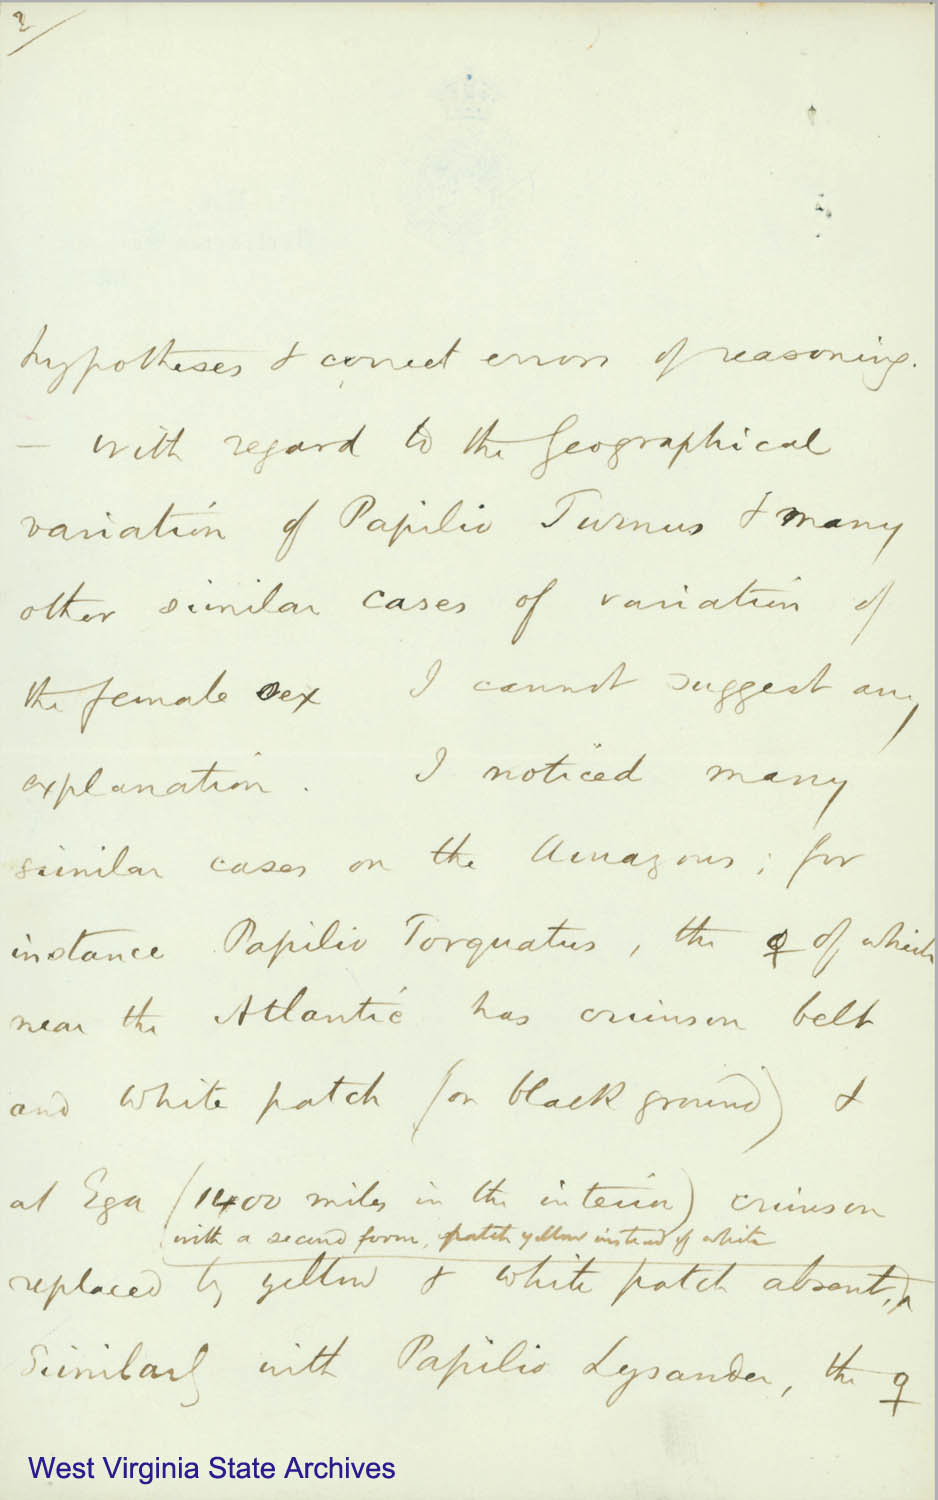 2
hypotheses & correct errors of reasoning.
— With regard to the Geographical
variation of Papilio Turnus & many
other similar cases of variation of
the female sex I cannot suggest any
explanation. I noticed many
similar cases on the Amazons; for
instance Papilio Torquatus, the ♀ of which
near the Atlantic has crimson belt
and white patch (on black ground) &
at Ega (1400 miles in the interior) crimson
with a second form, patch yellow instead of white
replaced by yellow & white patch absent,
Similarly with Papilio Lysander, the ♀
West Virginia State Archives